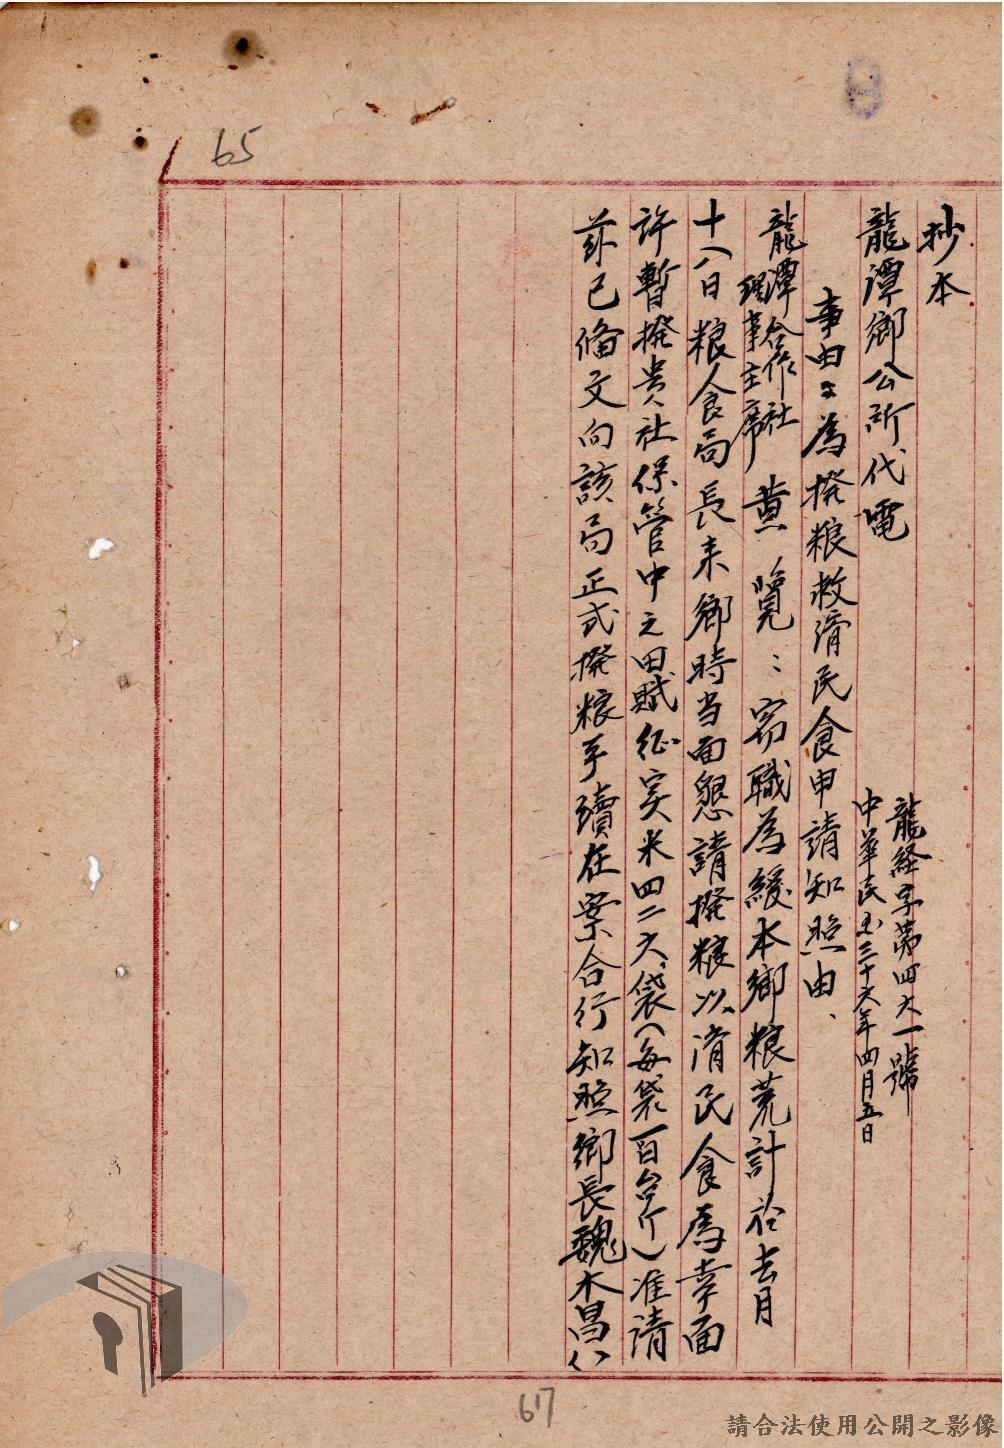 65
抄本
龍潭鄉公所代電
龍経字第四六一號
中華民国三十六年四月五日
事由：為撥粮救濟民食申請知照由、
龍潭合作社
理事主席 黄 覽：窃職為緩本鄉粮荒計於去月
十八日粮食局長来鄉時当面懇請撥粮以濟民食為幸面
許暫撥貴社保管中之田賦征实米四二六袋（每袋一百台斤）准請
茲已備文向該局正式撥粮手續在案合行知照鄉長魏木昌
67
請合法使用公開之影像